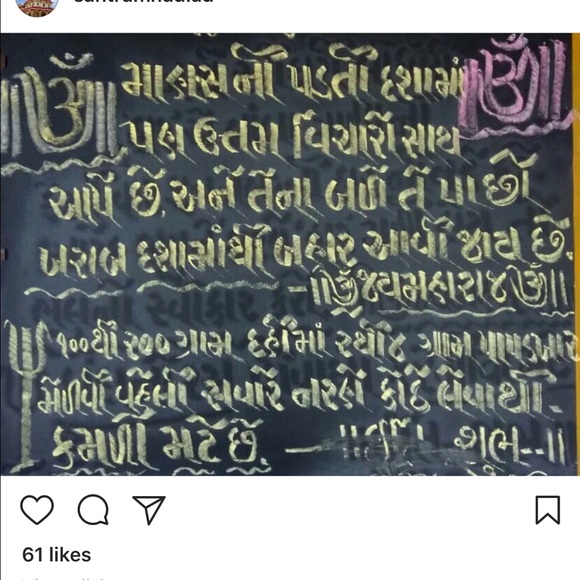 માણસની પડતી દશામાં ॥ૐ॥
॥ૐ॥ પણ ઉત્તમ વિચારો સાથ
આપે છે, અને તેના બળે તે પાછો
ખરાબ દશામાંથી બહાર આવી જાય છે.
-॥ૐજયમહારાજૐ॥
૧૦૦થી ૨૦૦ ગ્રામ દહીંમાં ૨થી૪ ગ્રામ પાપડખાર
મેળવી વહેલી સવારે નરણે કોઠે લેવાથી-
કમળો મટે છે. - શુભ--॥
61 likes